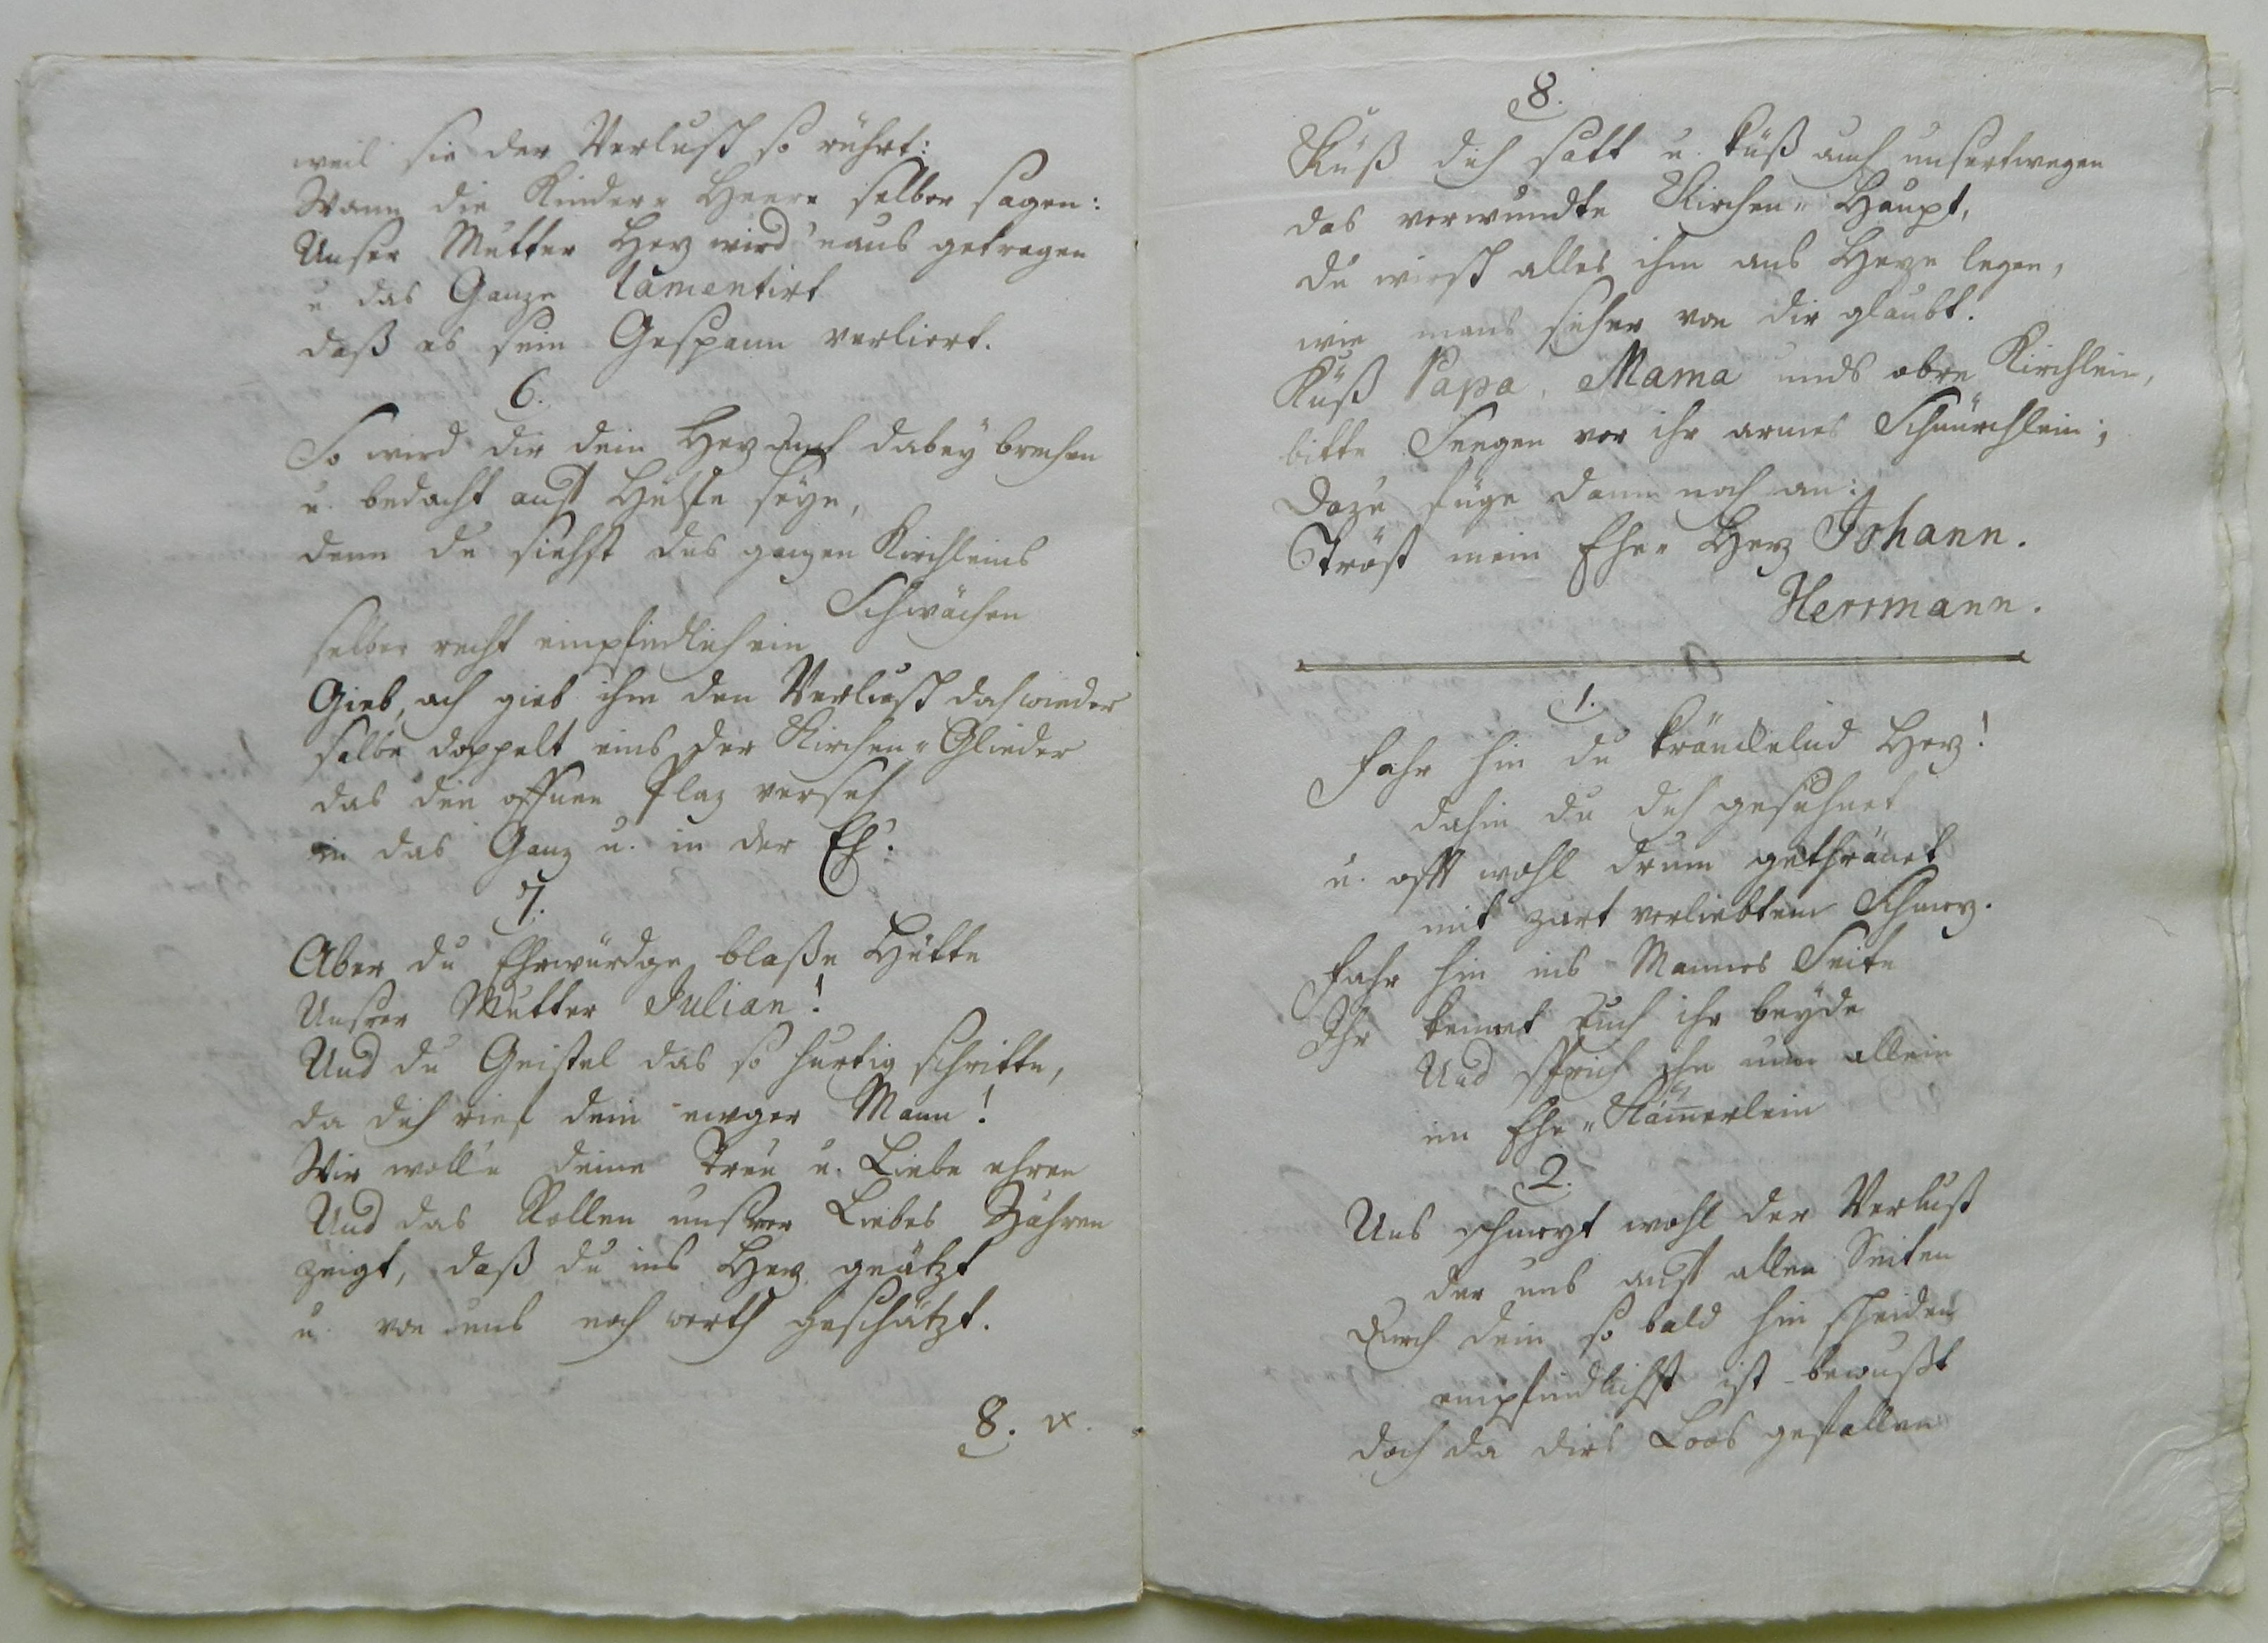 weil sie der Verlust so rührt:
Wann die Kinder= Heere selber sagen:
Unser Mutter Herz wird 'naus getragen
u. das Ganze lamentirt
daß es sein Gespann verliert.
6.
So wird dir dein Herz auch dabey brechen
u. bedacht auf Hülfe seyn,
denn du siehst des ganzen Kirchleins
Schwächen
selber recht empfindlich ein
Gieb, ach gieb ihm den Verlust doch wieder
selbe doppelt eins der Kirchen= Glieder
das den offnen Plaz verseh
in das Ganz u. in der Eh'.
7.
Aber du Ehrwürdge blaße Hütte
Unsrer Mutter Julian!
Und du Geistel das so hurtig schritte,
da dich rief dein ewger Mann!
Wir woll'n deine Treu u. Liebe ehren
Und das Rollen unsrer Liebes Zähren
zeigt, daß du ins Herz geätzt
u. von uns noch werth geschätzt.
8. x.
8.
Küß dich satt u. küß auch unsertwegen
das verwundte Kirchen= Haupt,
du wirst alles ihm ans Herze legen,
wie mans sicher von dir glaubt.
Küß Papa, Mama unds obre Kirchlein,
bitte Seegen vor ihr armes Schnürchlein;
Dazu füge dann noch an:
Tröst mein Ehe= Herz Johann.
Herrmann.
1.
Fahr hin du kränckelnd Herz!
dahin du dich gesehnet
u. offt wohl drum gethränet
mit zart verliebtem Schmerz.
Fahr hin ins Mannes Seite
Ihr kennet euch ihr beyde
Und sprich ihn nun allein
im Ehe= Kämerlein
2.
Uns schmerzt wohl der Verlust
der uns auf allen Seiten
durch dein so bald hin scheiden
empfindlichst ist bewußt
doch da dirs Loos gefallen